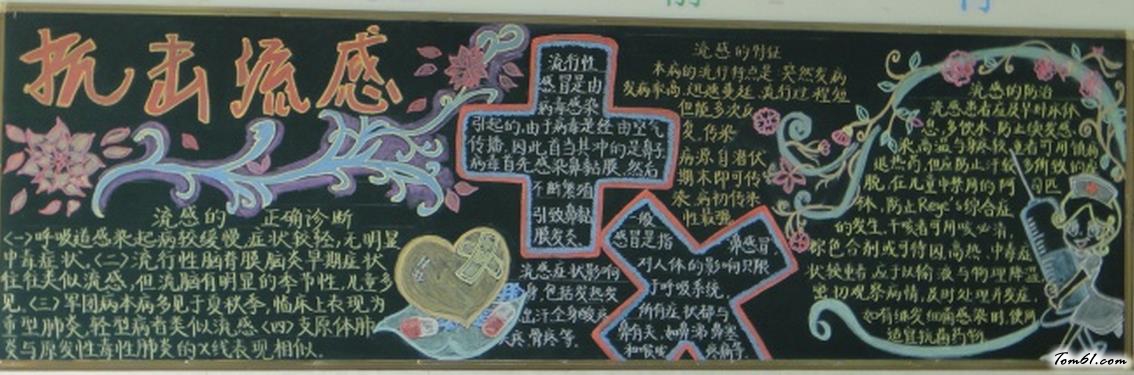 抗击流感
流感的 正确诊断
(一)呼吸道感染起病较缓慢,症状较轻,无明显
中毒症状(二)流行性脑脊膜脑炎早期症状
往往类似流感,但流脑有明显的季节性,儿童多
见,(三)军团病本病多见于夏秋季,临床上表现为
重型肺炎,轻型病者类似流感(四)支原体肺
炎与原发性毒性肺炎的X线表现相似.
流行性
感冒是由
病毒感染
引起的,由于病毒是经由空气
传播,因此首当其冲的是鼻子
病毒首先感染鼻黏膜,然后
不断繁殖
引致鼻黏
膜发炎
流感症状影响
身,包括发热发
出汗全身酸
骨疼等.
一般 鼻感冒
感冒是指
对人体的影响只限
于呼吸系统,
所有症状都与
鼻有关,如鼻涕鼻塞
和喉咙 疼痛等.
流感的特征
本病的流行特点是:突然发病
发病率高,迅速蔓延,流行过程短
但能多次反
复,传染
病源自潜伏
期末即可传
染,病初传染
性最强.
流感的防治
流感患者应及早卧床休
息,多饮水,防止继发感
染,高温与身疼较重者可用镇痛
退热药,但应防止汗较多所致的虚
脱,在儿童中禁用的阿司匹
林,防止Reye's综合症
的发生,干咳者可用咳必清,
棕色合剂或可待因,高热、中毒症
状较重者,应予以输液与物理降温
密切观察病情,及时处理并发症,
如有继发细菌感染时,使用
适宜抗菌药物.
Tom61.com